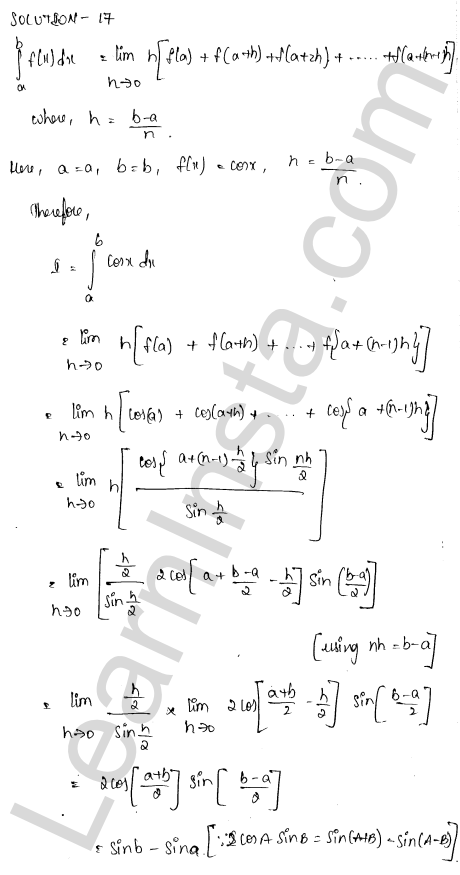 SOLUTION - 17
∫_a^b f(x)dx = lim_{h→0} h[f(a) + f(a+h) + f(a+2h) + ..... + f(a+(n-1)h]
where, h = (b-a)/n.
Here, a = a, b = b, f(x) = cosx, h = (b-a)/n.
Therefore,
I = ∫_a^b cosx dx
= lim_{h→0} h[f(a) + f(a+h) + ...+ f{a+(n-1)h}]
= lim_{h→0} h[cos(a) + cos(a+h) + ... + cos{a+(n-1)h}]
= lim_{h→0} h[cos{a+(n-1)h/2} sin nh/2 / sin h/2]
= lim_{h→0} [(h/2)/(sin h/2) 2cos[a + (b-a)/2 - h/2] sin((b-a)/2)]
[using nh = b-a]
= lim_{h→0} (h/2)/(sin h/2) × lim_{h→0} 2cos[(a+b)/2 - h/2] sin[(b-a)/2]
= 2cos[(a+b)/2] sin[(b-a)/2]
= sinb - sina [∵ 2cosA sinB = sin(A+B) - sin(A-B)]
LearnInsta.com